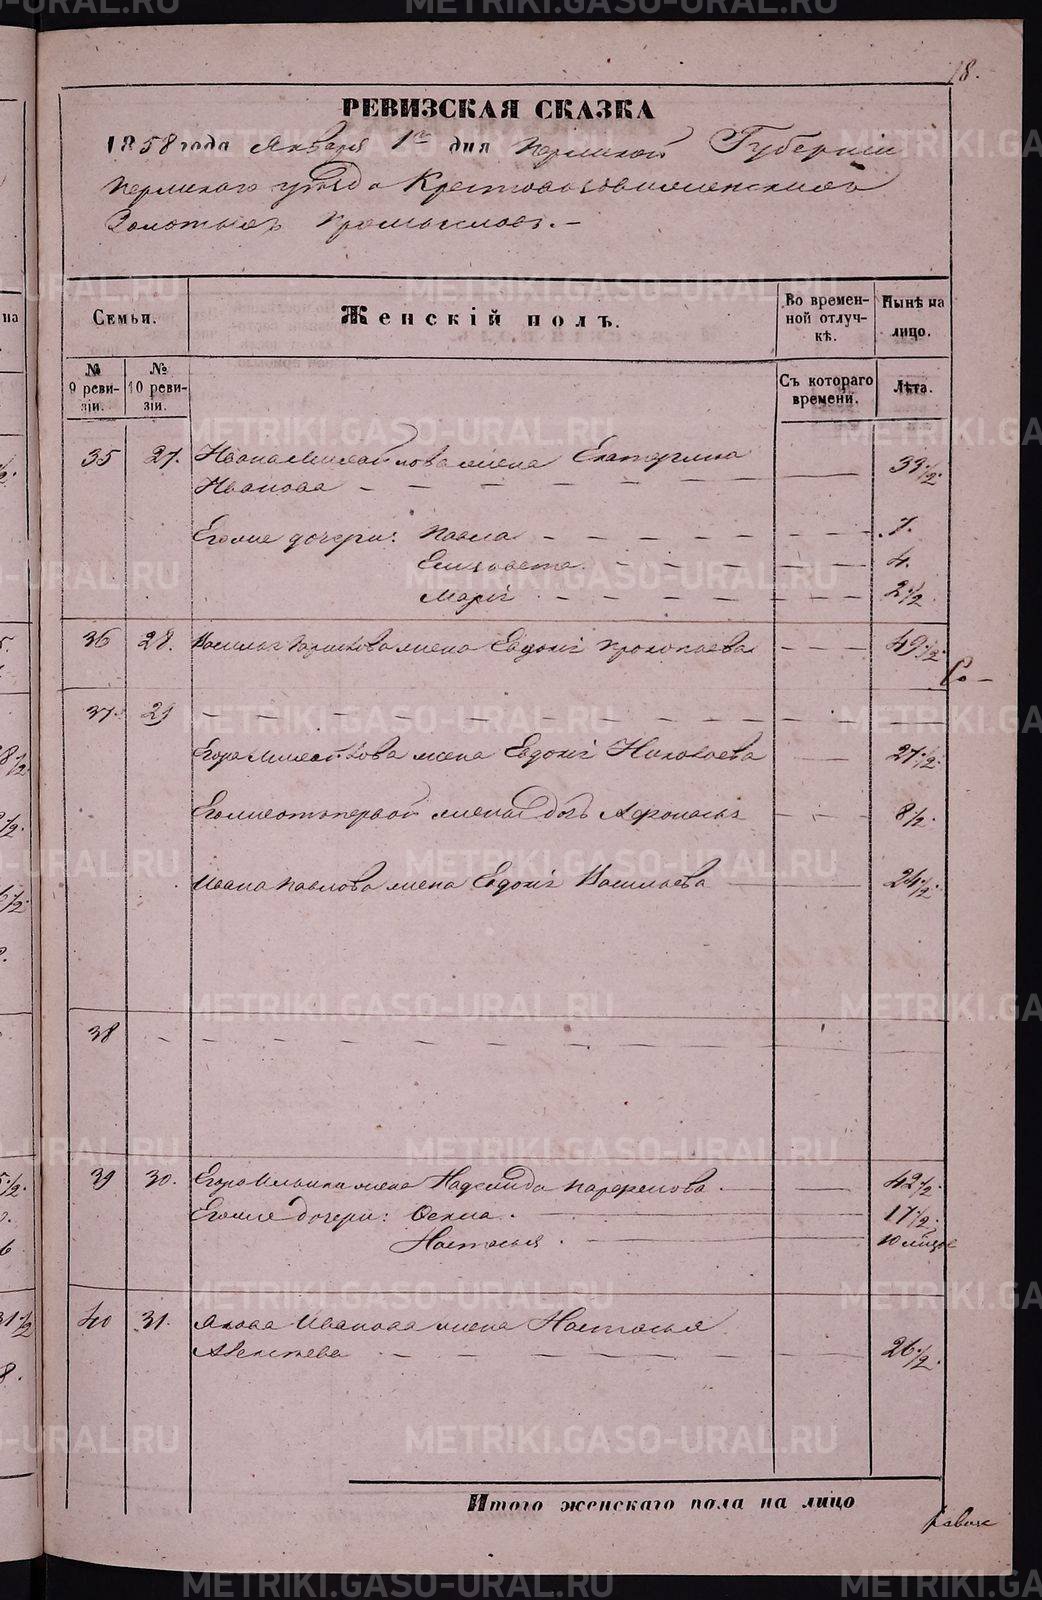 18.
РЕВИЗСКАЯ СКАЗКА
1858 года Января 1го дня Пермской Губерніи
Пермскаго уѣзда Крестовоздвиженскихъ
Золотыхъ промысловъ. —
Семьи.
Женскій полъ.
Во времен-
ной отлуч-
кѣ.
Нынѣ на
лицо.
№
9 реви-
зіи.
№
10 реви-
зіи.
Съ котораго
времени.
Лѣта.
35 27. Ивана Михайлова жена Екатерина
Иванова — 39 1/2.
Его же дочери: Павла — 7.
Елизавета — 4.
Марія — 2 1/2
36 28. жена Евдокія Прокопьева — 49 1/2.
37. 29 —
Егора жена Евдокія — 27 1/2.
Его же отъ первой жены дочь — 8 1/2.
Ивана Павлова жена Евдокія Васильева — 24 1/2.
38 —
39 30. Егора Ильина жена Надежда Парфенова — 42 1/2.
Его же дочери: — 17 1/2.
Настасья — 10 мѣсяц
40 31. Якова Иванова жена Настасья
— 26 1/2.
Итого женскаго пола на лицо
METRIKI.GASO-URAL.RU